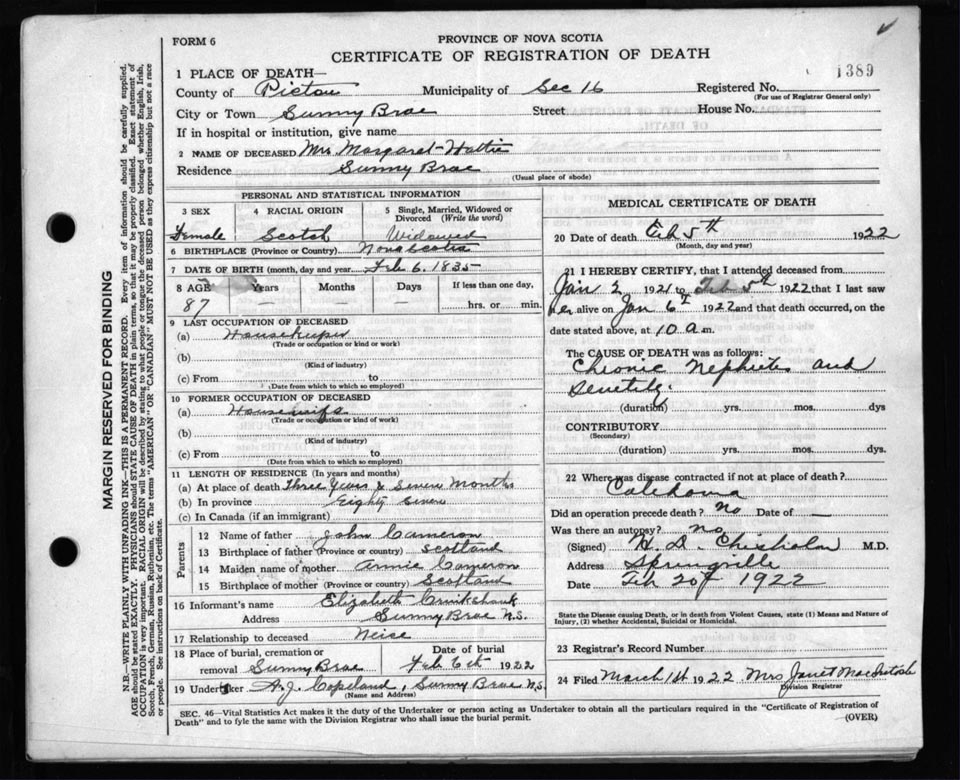 FORM 6
PROVINCE OF NOVA SCOTIA
CERTIFICATE OF REGISTRATION OF DEATH
1389
1 PLACE OF DEATH—
County of Pictou Municipality of Sec 16 Registered No.
(For use of Registrar General only)
City or Town Sunny Brae Street House No.
If in hospital or institution, give name
2 NAME OF DECEASED Mrs Margaret Hattie
Residence Sunny Brae
(Usual place of abode)
PERSONAL AND STATISTICAL INFORMATION
3 SEX 4 RACIAL ORIGIN 5 Single, Married, Widowed or Divorced (Write the word)
Female Scotch Widowed
6 BIRTHPLACE (Province or Country) Nova Scotia
7 DATE OF BIRTH (month, day and year Feb 6. 1835
8 AGE Years Months Days If less than one day,
87 hrs. or min.
9 LAST OCCUPATION OF DECEASED
(a) Housekeeper
(Trade or occupation or kind or work)
(b)
(Kind of industry)
(c) From to
(Date from which to which so employed)
10 FORMER OCCUPATION OF DECEASED
(a) Housewife
(Trade or occupation or kind of work)
(b)
(Kind of industry)
(c) From to
(Date from which to which so employed)
11 LENGTH OF RESIDENCE (In years and months)
(a) At place of death Three Years & Seven Months
(b) In province Eighty Seven
(c) In Canada (if an immigrant)
Parents
12 Name of father John Cameron
13 Birthplace of father (Province or country) Scotland
14 Maiden name of mother Annie Cameron
15 Birthplace of mother (Province or country) Scotland
16 Informant's name Elizabeth Cruikshank
Address Sunny Brae N.S.
17 Relationship to deceased Neice
18 Place of burial, cremation or Date of burial
removal Sunny Brae Feb 6th 1922
19 Undertaker A.J. Copeland, Sunny Brae N.S.
(Name and Address)
MEDICAL CERTIFICATE OF DEATH
20 Date of death Feb 5th 1922
(Month, day and year)
21 I HEREBY CERTIFY, that I attended deceased from
Jan 2 1921 to Feb 5th 1922 that I last saw
her alive on Jan 6th 1922 and that death occurred, on the
date stated above, at 10 a m.
The CAUSE OF DEATH was as follows:
Chronic Nephritis and
Senility.
(duration) yrs. mos. dys
CONTRIBUTORY
(Secondary)
(duration) yrs. mos. dys
22 Where was disease contracted if not at place of death?
Did an operation precede death? No Date of —
Was there an autopsy? No
(Signed) H. D. Chisholm M.D.
Address Springville
Date Feb 20th 1922
State the Disease causing Death, or in death from Violent Causes, state (1) Means and Nature of
Injury, (2) whether Accidental, Suicidal or Homicidal.
23 Registrar's Record Number
24 Filed March 1st 1922 Mrs Janet MacIntosh
Division Registrar
SEC. 46—Vital Statistics Act makes it the duty of the Undertaker or person acting as Undertaker to obtain all the particulars required in the "Certificate of Registration of
Death" and to fyle the same with the Division Registrar who shall issue the burial permit.
(OVER)
MARGIN RESERVED FOR BINDING
N.B.—WRITE PLAINLY WITH UNFADING INK—THIS IS A PERMANENT RECORD. Every item of information should be carefully supplied.
AGE should be stated EXACTLY. PHYSICIANS should STATE CAUSE OF DEATH in plain terms, so that it may be properly classified. Exact statement of
OCCUPATION is very important. RACIAL ORIGIN will be described by stating to what people or tongue the deceased person belonged whether English, Irish,
Scotch, French, German, Russian, Ruthenian, etc. The terms "AMERICAN" OR "CANADIAN" MUST NOT BE USED as they express citizenship but not a race
or people. See instructions on back of Certificate.